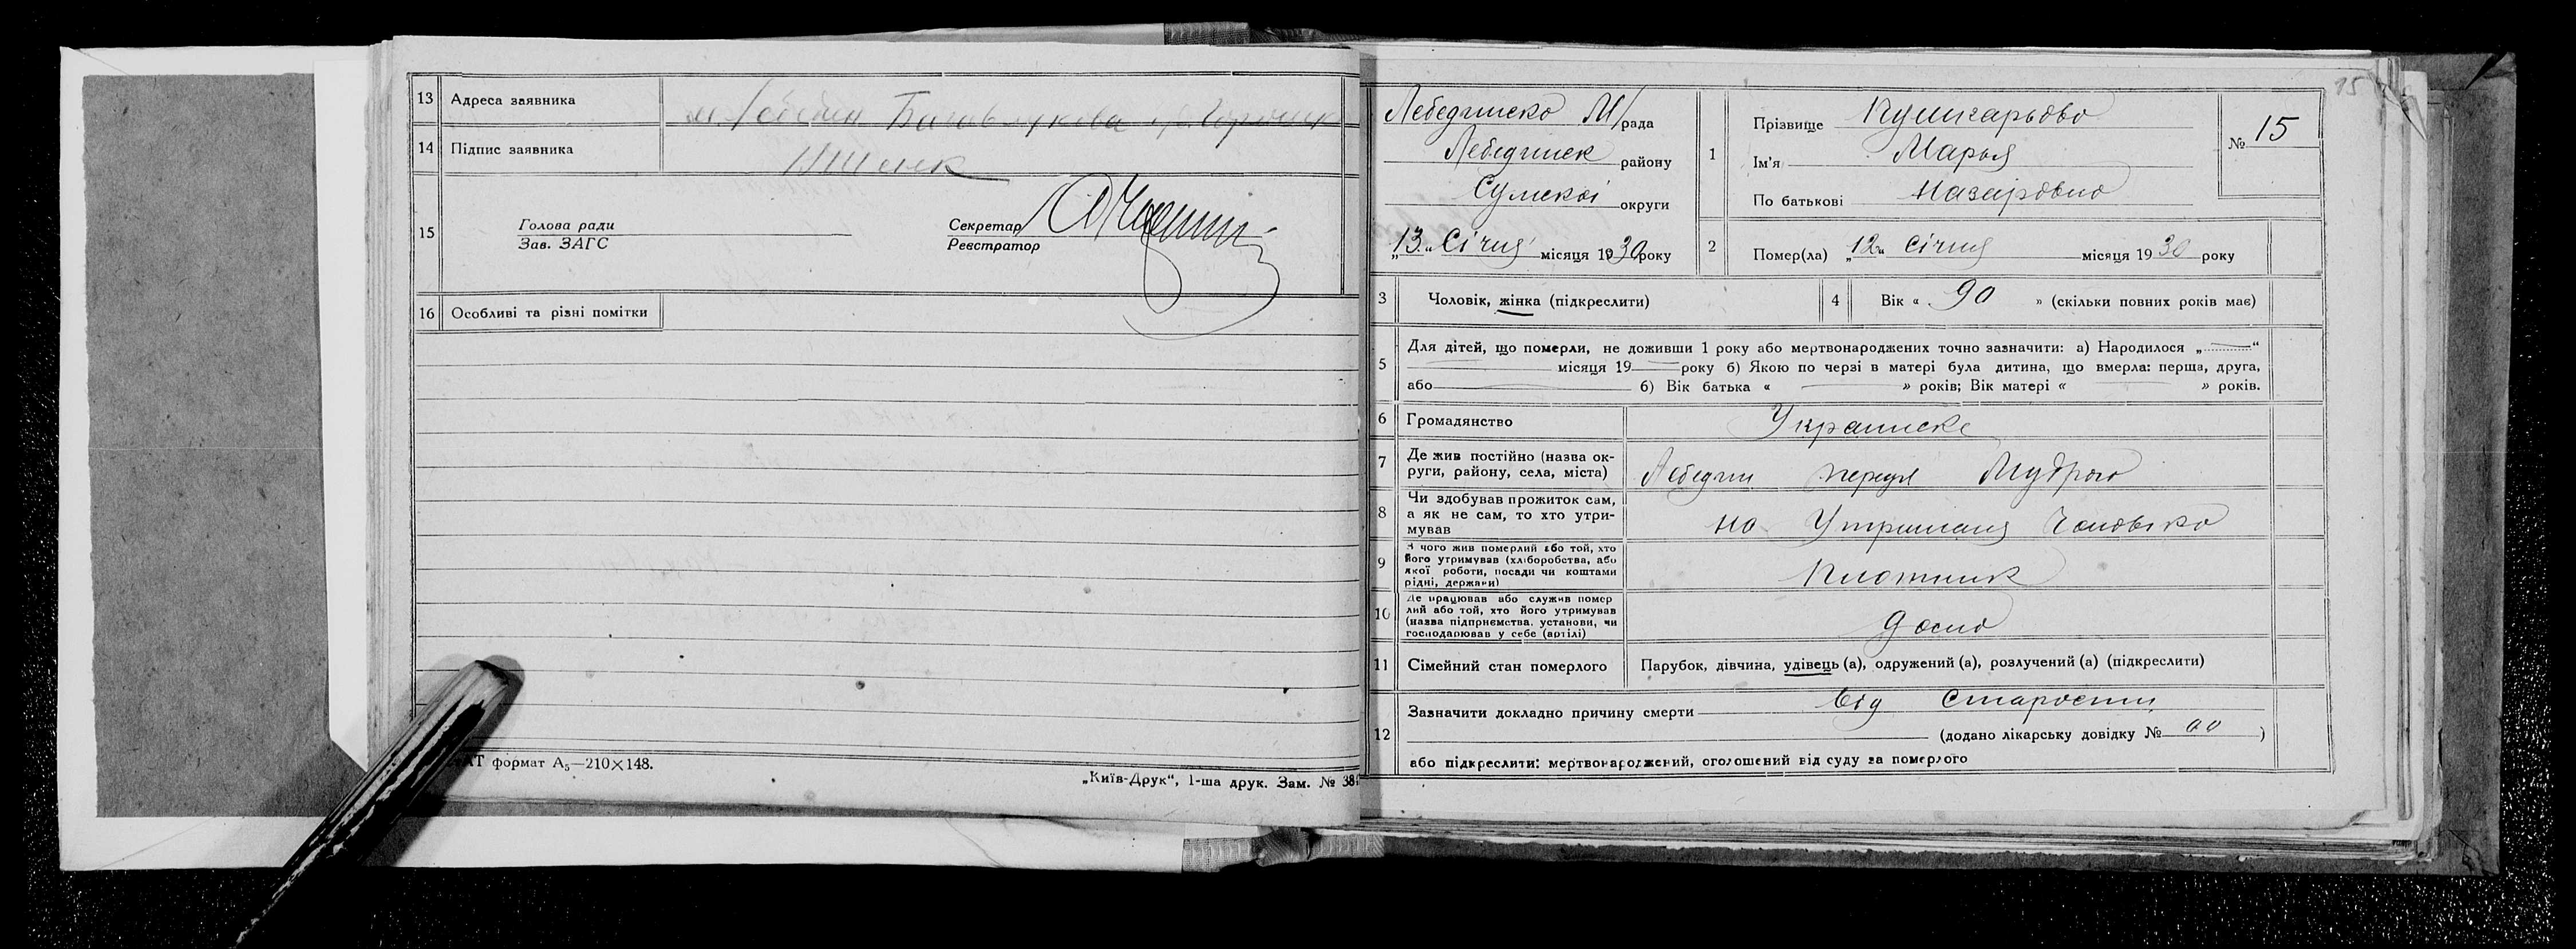 13 Адреса заявника м. Лебедин
14 Підпис заявника
15 Голова ради
Зав. ЗАГС
Секретар
Реєстратор
16 Особливі та різні помітки
формат А5—210×148.
„Київ-Друк“, 1-ша друк. Зам. № 38
15
Лебединско М/рада
Лебединск району
Сумскоі округи
„13“ Січня місяця 1930 року
1 Прізвище Кушнарьова
Ім'я Марья
По батькові Назаровна
№ 15
2 Помер(ла) „12“ Січня місяця 1930 року
3 Чоловік, жінка (підкреслити)
4 Вік « 90 » (скільки повних років має)
5 Для дітей, що померли, не доживши 1 року або мертвонароджених точно зазначити: а) Народилося „ “
місяця 19 року б) Якою по черзі в матері була дитина, що вмерла: перша, друга,
або б) Вік батька « » років; Вік матері « » років.
6 Громадянство Украинске
7 Де жив постійно (назва ок-
руги, району, села, міста) Лебедин Мудрого
8 Чи здобував прожиток сам,
а як не сам, то хто утри-
мував на Утриманя Чоловіка
9 З чого жив померлий або той, хто
його утримував (хліборобства, або
якої роботи, посади чи коштами
рідні, держави) Плотник
10 Де працював або служив помер
лий або той, хто його утримував
(назва підприємства, установи, чи
господарював у себе (артілі) дома
11 Сімейний стан померлого Парубок, дівчина, удівець (а), одружений (а), розлучений (а) (підкреслити)
12 Зазначити докладно причину смерти Від Старости
(додано лікарську довідку № )
або підкреслити: мертвонароджений, оголошений від суду за померлого